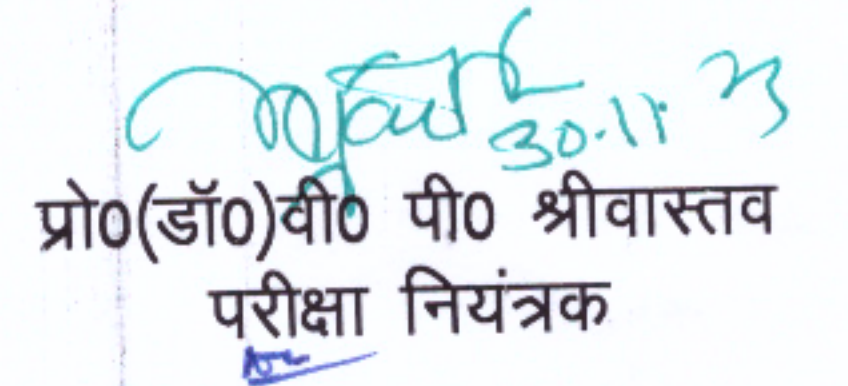 30.11.23
प्रो0(डॉ0)वी0 पी0 श्रीवास्तव
परीक्षा नियंत्रक